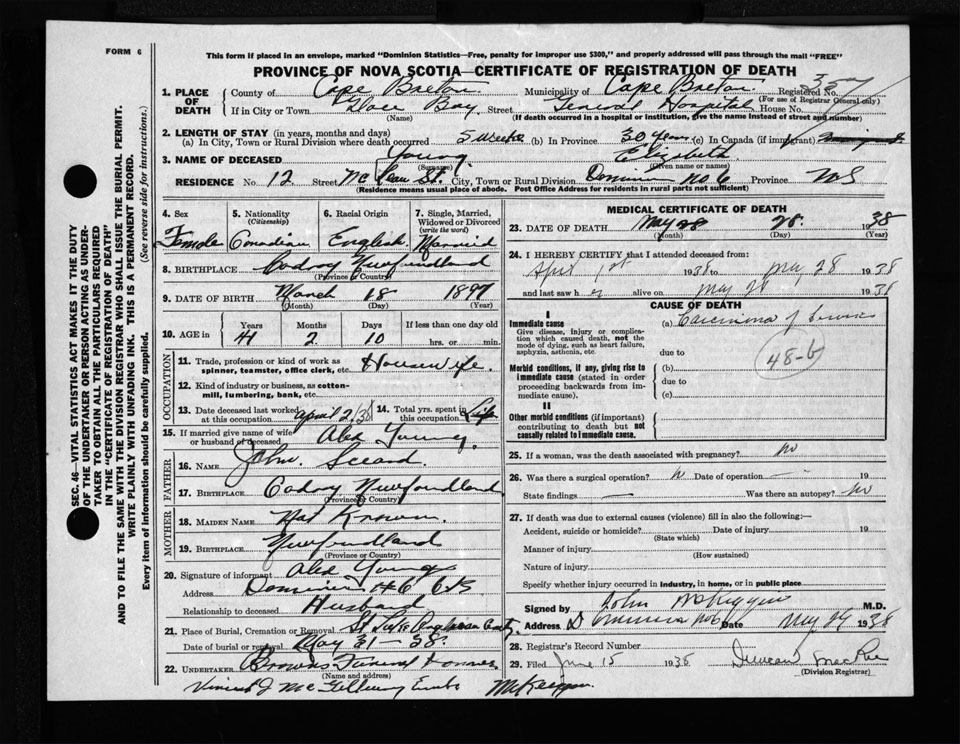 FORM 6
This form if placed in an envelope, marked "Dominion Statistics—Free, penalty for improper use $300," and properly addressed will pass through the mail "FREE"
PROVINCE OF NOVA SCOTIA—CERTIFICATE OF REGISTRATION OF DEATH
1. PLACE OF DEATH County of Cape Breton Municipality of Cape Breton Registered No.
(For use of Registrar General only)
If in City or Town Glace Bay Street General Hospital House No.
(Name) (If death occurred in a hospital or institution, give the name instead of street and number)
2. LENGTH OF STAY (in years, months and days)
(a) In City, Town or Rural Division where death occurred 5 weeks (b) In Province 30 years (c) In Canada (if immigrant)
3. NAME OF DECEASED Young Elizabeth
(Surname) (Given name or names)
RESIDENCE No. 12 Street McLean St. City, Town or Rural Division Dominion No 6 Province N.S
(Residence means usual place of abode. Post Office Address for residents in rural parts not sufficient)
4. Sex Female
5. Nationality (Citizenship) Canadian
6. Racial Origin English
7. Single, Married, Widowed or Divorced (write the word) Married
8. BIRTHPLACE Codroy Newfoundland
(Province or Country)
9. DATE OF BIRTH March 18 1897
(Month) (Day) (Year)
10. AGE in Years 41 Months 2 Days 10 If less than one day old hrs. or min.
OCCUPATION
11. Trade, profession or kind of work as spinner, teamster, office clerk, etc. Housewife.
12. Kind of industry or business, as cotton-mill, lumbering, bank, etc.
13. Date deceased last worked at this occupation April 2/38
14. Total yrs. spent in this occupation Life
15. If married give name of wife or husband of deceased Alex Young.
FATHER
16. NAME John
17. BIRTHPLACE Codroy Newfoundland
(Province or Country)
MOTHER
18. MAIDEN NAME Not Known
19. BIRTHPLACE Newfoundland
(Province or Country)
20. Signature of informant Alex Young
Address Dominion #6 C.B
Relationship to deceased Husband
21. Place of Burial, Cremation or Removal St Luke
Date of burial or removal May 31—38.
22. UNDERTAKER Browns Funeral Homes
(Name and address)
Vincent J McGillivray
MEDICAL CERTIFICATE OF DEATH
23. DATE OF DEATH May 28 28. 1938
(Month) (Day) (Year)
24. I HEREBY CERTIFY that I attended deceased from:
April 1st 1938 to May 28 1938
and last saw her alive on May 28 1938
CAUSE OF DEATH
I
Immediate cause
Give disease, injury or complication which caused death, not the mode of dying, such as heart failure, asphyxia, asthenia, etc.
(a) Carcinoma of
due to
48-b
Morbid conditions, if any, giving rise to immediate cause (stated in order proceeding backwards from immediate cause).
(b)
due to
(c)
II
Other morbid conditions (if important) contributing to death but not causally related to immediate cause.
25. If a woman, was the death associated with pregnancy? No
26. Was there a surgical operation? Date of operation 19
State findings — Was there an autopsy? No
27. If death was due to external causes (violence) fill in also the following:—
Accident, suicide or homicide? Date of injury 19
(State which)
Manner of injury
(How sustained)
Nature of injury
Specify whether injury occurred in industry, in home, or in public place
Signed by John M.D.
Address Dominion No 6 Date May 29 1938
28. Registrar's Record Number
29. Filed June 15 1938 Duncan MacRae
(Division Registrar)
SEC. 46—VITAL STATISTICS ACT MAKES IT THE DUTY
OF THE UNDERTAKER OR PERSON ACTING AS UNDER-
TAKER TO OBTAIN ALL THE PARTICULARS REQUIRED
IN THE "CERTIFICATE OF REGISTRATION OF DEATH"
AND TO FILE THE SAME WITH THE DIVISION REGISTRAR WHO SHALL ISSUE THE BURIAL PERMIT.
WRITE PLAINLY WITH UNFADING INK. THIS IS A PERMANENT RECORD.
Every item of information should be carefully supplied. (See reverse side for instructions.)